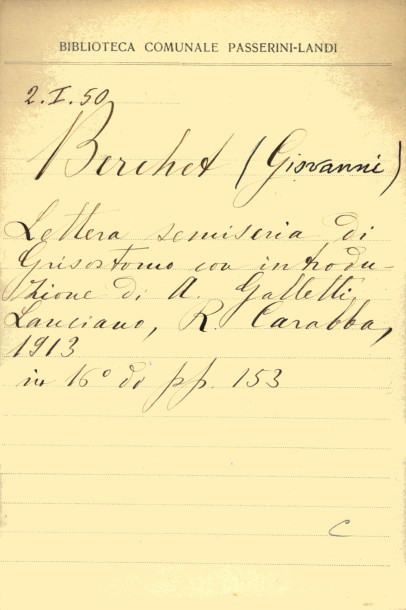 BIBLIOTECA COMUNALE PASSERINI-LANDI
2.I.50
Berchet (Giovanni)
Lettera semiseria di
Grisostomo con introdu-
zione di A. Galletti
Lanciano, R. Carabba,
1913
in 16° di pp. 153
C